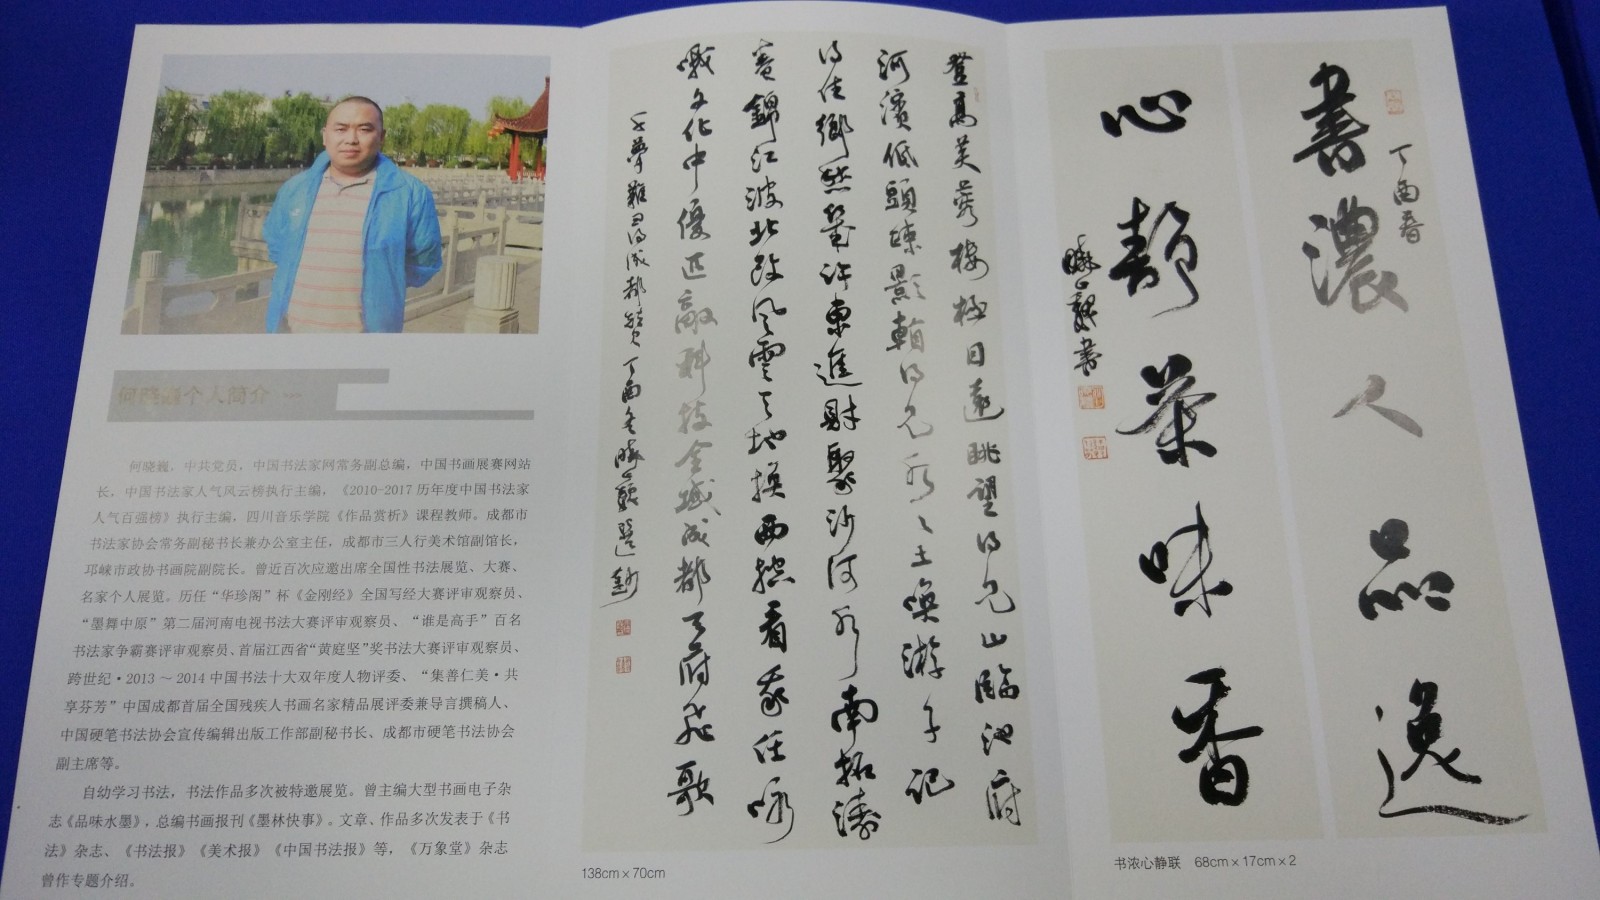 何晓巍个人简介
何晓巍，中共党员，中国书法家网常务副总编，中国书画展赛网站
长，中国书法家人气风云榜执行主编，《2010-2017 历年度中国书法家
人气百强榜》执行主编，四川音乐学院《作品赏析》课程教师。成都市
书法家协会常务副秘书长兼办公室主任，成都市三人行美术馆副馆长，
邛崃市政协书画院副院长。曾近百次应邀出席全国性书法展览、大赛、
名家个人展览。历任“华珍阁”杯《金刚经》全国写经大赛评审观察员、
“墨舞中原”第二届河南电视书法大赛评审观察员、“谁是高手”百名
书法家争霸赛评审观察员、首届江西省“黄庭坚”奖书法大赛评审观察员、
跨世纪·2013～2014 中国书法十大双年度人物评委、“集善仁美·共
享芬芳”中国成都首届全国残疾人书画名家精品展评委兼导言撰稿人、
中国硬笔书法协会宣传编辑出版工作部副秘书长、成都市硬笔书法协会
副主席等。
自幼学习书法，书法作品多次被特邀展览。曾主编大型书画电子杂
志《品味水墨》，总编书画报刊《墨林快事》。文章、作品多次发表于《书
法》杂志、《书法报》《美术报》《中国书法报》等，《万象堂》杂志
曾作专题介绍。
登高芙蓉楼 极目远眺望 见山临池府
河滨低头 影 游子记
得佳乡 东进财聚沙河 南拓涛
锦江波北改风云天地换西控看 任咏
文化中优匹敌科技全域成都天府飞歌
成都 丁酉冬晓巍
138cm×70cm
書濃人品逸
丁酉春
心靜茶味香
曉巍書
书浓心静联 68cm×17cm×2